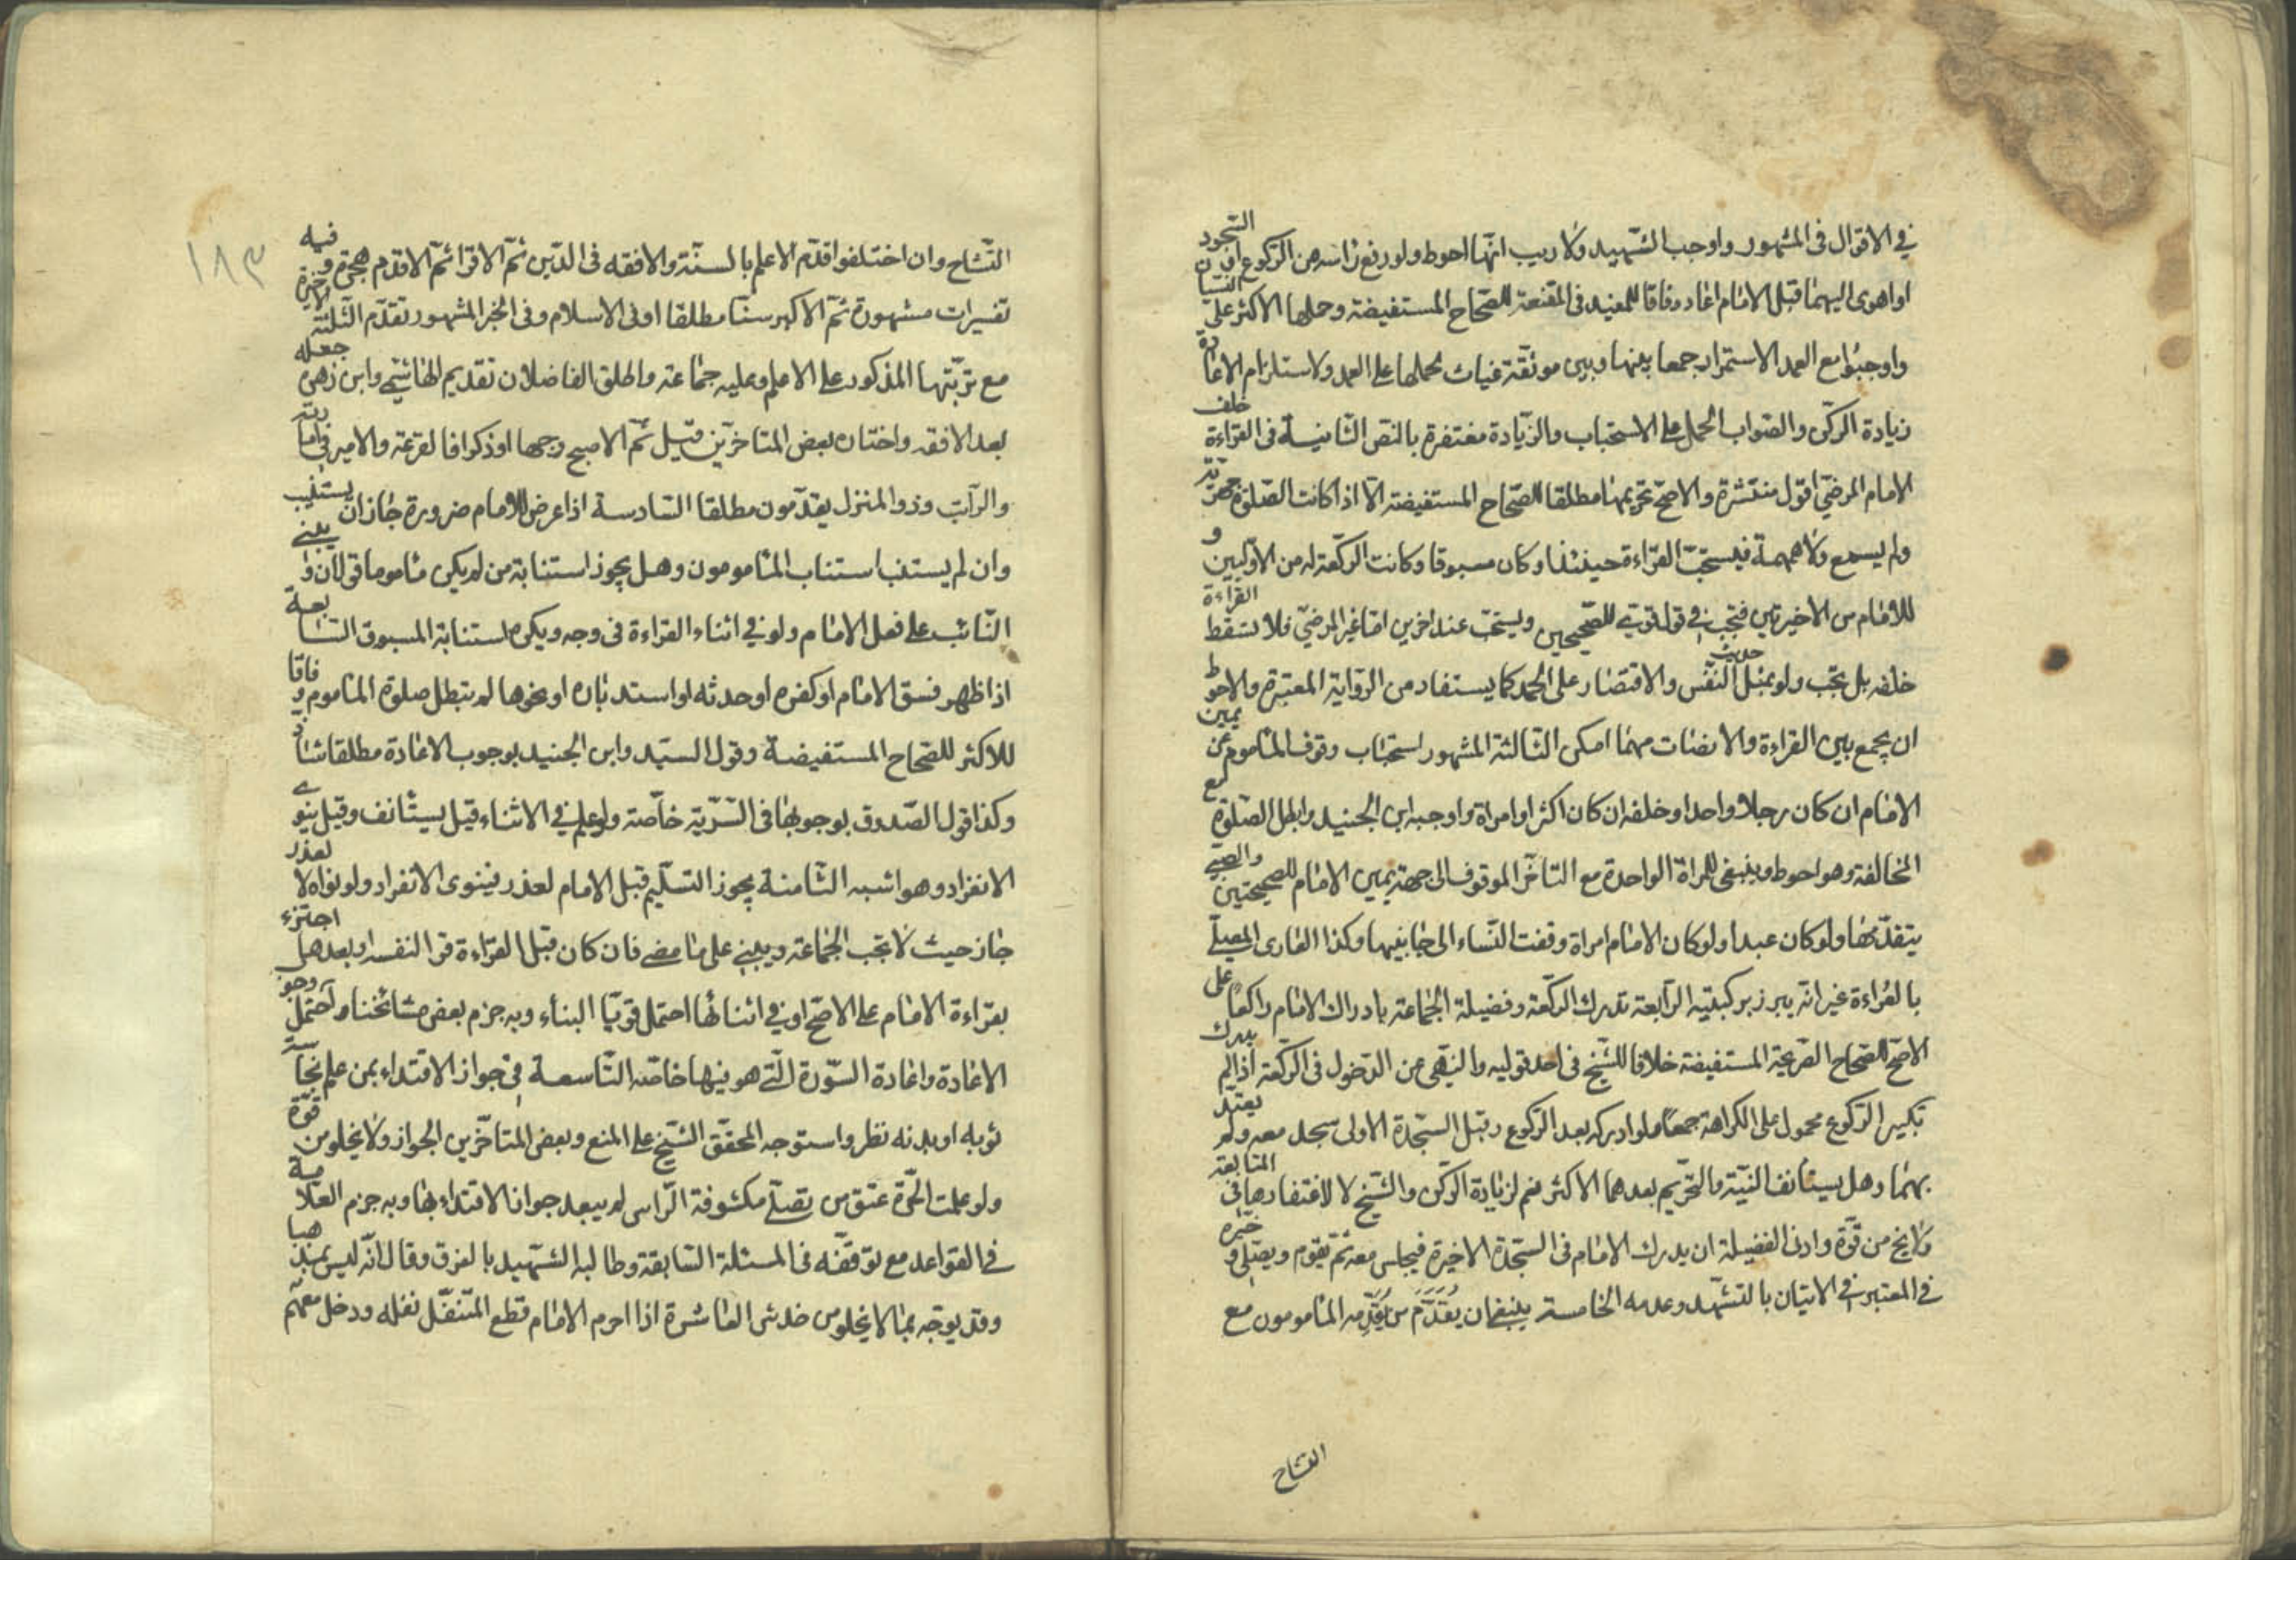 في الاقوال في المشهور واوجب الشهيد ولا ريب انها احوط ولو رفع راسه من الركوع او من السجود
او اهوى اليهما قبل الامام اعاد وفاقا للمفيد في المقنعة للصحاح المستفيضة وحملها الاكثر على النسيان
واوجبوا مع العمد الاستمرار جمعا بينها وبين موثقة غياث بحملها على العمد ولاستلزام الاعادة
زيادة الركن والصواب الحمل على الاستحباب والزيادة مغتفرة بالنص الثانية في القراءة خلف
الامام المرضي اقول منتشرة والاصح تحريمها مطلقا للصحاح المستفيضة الا اذا كانت الصلوة جهرية
ولم يسمع ولا همهمة فيستحب القراءة حينئذ او كان مسبوقا وكانت الركعة له من الاوليين و
للامام من الاخيرتين فتجب في قول قوي للصحيحين ويستحب عند اخرين اما غير المرضي فلا تسقط القراءة
خلفه بل تجب ولو بمثل حديث النفس والاقتصار على الحمد كما يستفاد من الرواية المعتبرة والاحوط
ان يجمع بين القراءة والانصات مهما امكن الثالثة المشهور استحباب وقوف الماموم عن يمين
الامام ان كان رجلا واحدا وخلفه ان كان اكثر او امراة واوجبه ابن الجنيد وابطل الصلوة مع
المخالفة وهو احوط وينبغي للمراة الواحدة مع التاخر الموقوف الى جهة يمين الامام للصحيحتين والصبي
يتقدمها ولو كان عبدا ولو كان الامام امراة وقفت النساء الى جانبيها وكذا العاري المصلي
بالعراءة غير انه يبرز بركبتيه الرابعة تدرك الركعة وفضيلة الجماعة بادراك الامام راكعا على
الاصح للصحاح الصريحة المستفيضة خلافا للشيخ في احد قوليه والنهي عن الدخول في الركعة اذا لم يدرك
تكبير الركوع محمول على الكراهة جمعا ولو ادركه بعد الركوع وقبل السجدة الاولى سجد معه ولم يعتد
بهما وهل يستانف النية والتحريم بعدهما الاكثر نعم لزيادة الركن والشيخ لا لاغتفارها في المتابعة
ولا يخ من قوة وادنى الفضيلة ان يدرك الامام في السجدة الاخيرة فيجلس معه ثم يقوم ويصلي و خيره
في المعتبر في الاتيان بالتشهد وعدمه الخامسة ينبغي ان يقدم من يقدمه المامومون مع
التشاح
التشاح وان اختلفوا قدم الاعلم بالسنة والافقه في الدين ثم الاقرا ثم الاقدم هجرة وفيه
تفسيرات مشهورة ثم الاكبر سنا مطلقا او في الاسلام وفي الخبر المشهور تقدم الثلثة الاخيرة
مع ترتبها المذكور على الاعلم وعليه جماعة واطلق الفاضلان تقديم الهاشمي وابن زهرة جعله
بعد الافقه واختاره بعض المتاخرين قيل ثم الاصبح وجها او ذكرا فالقرعة والامير في امارته
والراتب وذو المنزل يقدمون مطلقا السادسة اذا عرض للامام ضرورة جاز ان يستنيب
وان لم يستنب استناب المامومون وهل يجوز استنابة من لم يكن ماموما قولان و يبني
النائب على فعل الامام ولو في اثناء القراءة في وجه ويكره استنابة المسبوق السابعة
اذا ظهر فسق الامام او كفره او حدثه او استدباره او نحوها لم تبطل صلوة الماموم وفاقا
للاكثر للصحاح المستفيضة وقول السيد وابن الجنيد بوجوب الاعادة مطلقا شاذ
وكذا قول الصدوق بوجوبها في السرية خاصة ولو علم في الاثناء قيل يستانف وقيل ينوي
الانفراد وهو اشبه الثامنة يجوز التسليم قبل الامام لعذر فينوي الانفراد ولو نواه لا لعذر
جاز حيث لا تجب الجماعة ويبني على ما مضى فان كان قبل القراءة قرا لنفسه او بعد هل اجتزء
بقراءة الامام على الاصح او في اثنائها احتمل قويا البناء وبه جزم بعض مشائخنا واحتمل وجوب
الاعادة واعادة السورة التي هو فيها خاصة التاسعة في جواز الاقتداء بمن علم نجاسة
ثوبه او بدنه نظر واستوجه المحقق الشيخ علي المنع وبعض المتاخرين الجواز ولا يخلو من قوة
ولو علمت الحرة عتق من تصلي مكشوفة الراس لم يبعد جواز الاقتداء بها وبه جزم العلامة
في القواعد مع توقفه في المسئلة السابقة وطالبه الشهيد بالفرق وقال انه ليس بمذهبنا
وقد يوجه بما لا يخلو من خدش العاشرة اذا احرم الامام قطع المتنفل نفله ودخل معهم
١٨٣